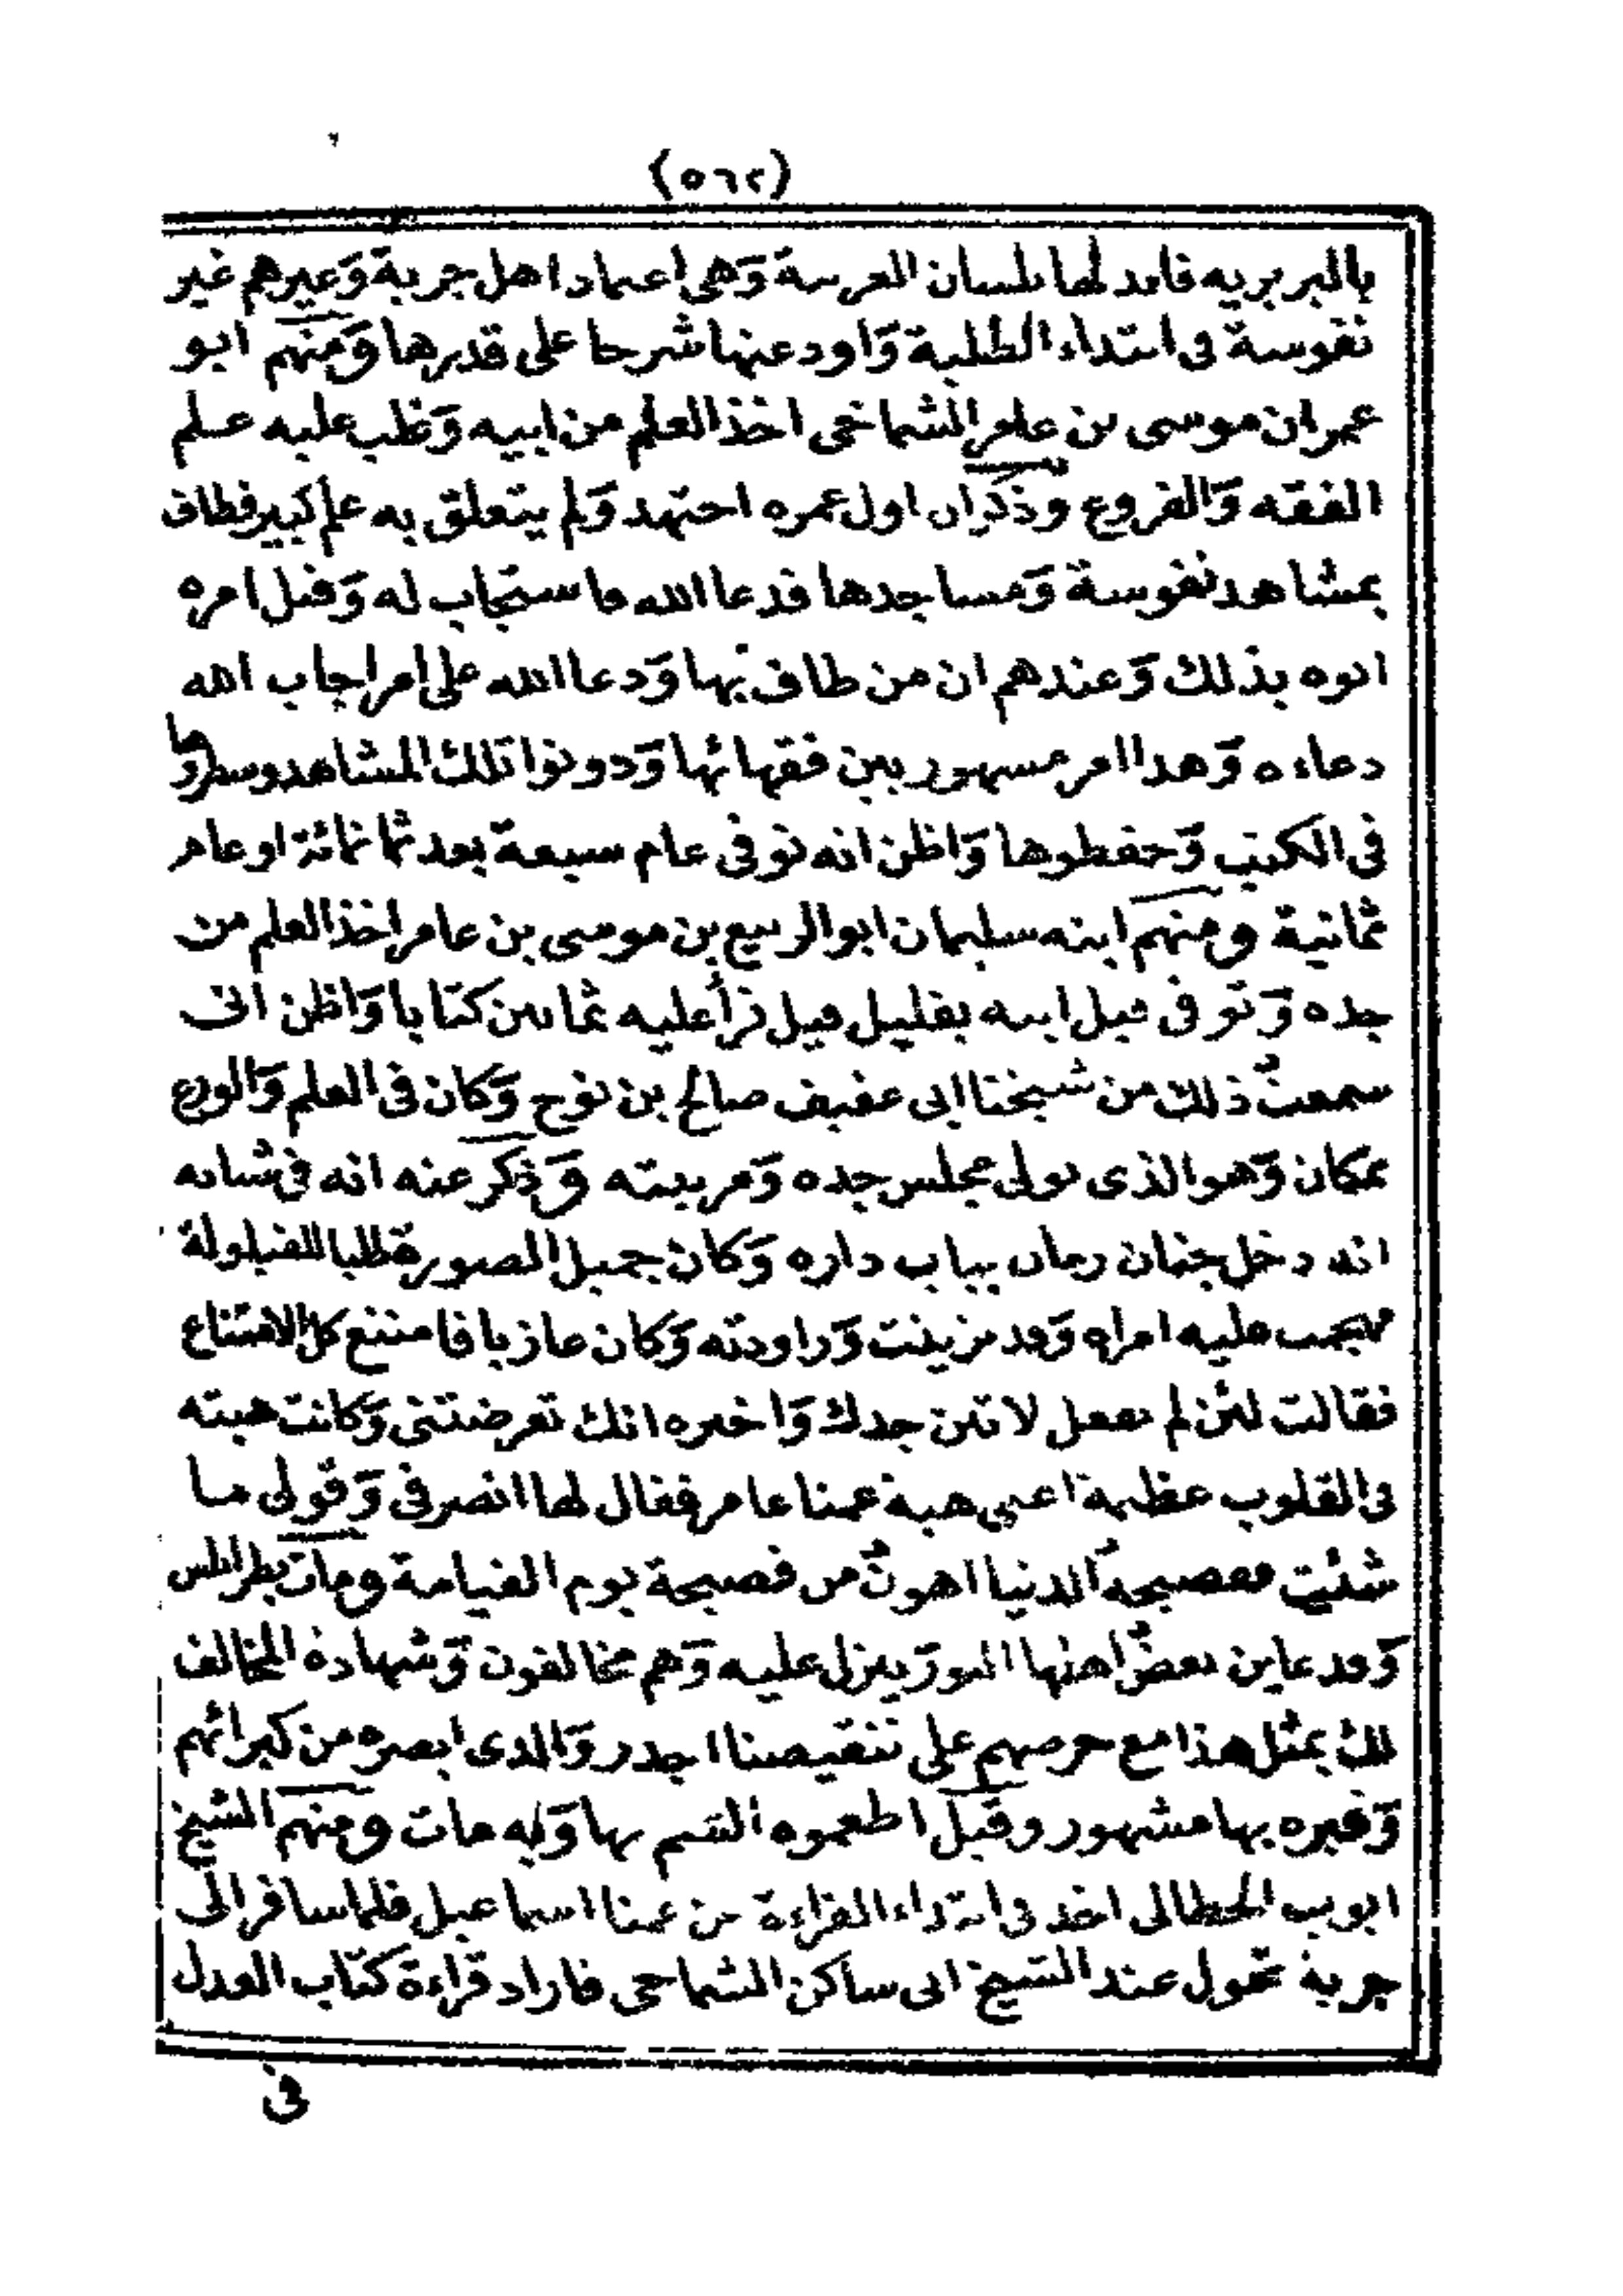 (٥٦٢)
بالبربريه فابدلها بلسان العربية وهى اعتماد اهل جربة وغيرهم غير
نفوسة فى ابتداء الطلبة واودعنها شرحا على قدرها ومنهم ابو
عمران موسى بن عامر الشماخى اخذ العلم من ابيه وغلب عليه علم
الفقه والفروع وذكر ان اول عمره اجتهد ولم يتعلق به علم كبير فطاف
بمشاهد نفوسة ومساجدها فدعا الله فاستجاب له وقيل امره
ابوه بذلك وعندهم ان من طاف بها ودعا الله على امر اجاب الله
دعاءه وهذا امر مشهور بين فقهائها ودونوا تلك المشاهد وسطروها
فى الكتب وحفظوها واظن انه توفى عام سبعة بعد ثمانمائة او عام
ثمانية ومنهم ابنه سليمان ابو الربيع بن موسى بن عامر اخذ العلم من
جده وتوفى قبل ابيه بقليل قيل قرأ عليه ثمانين كتابا واظن انى
سمعت ذلك من شيخنا ابى عفيف صالح بن نوح وكان فى العلم والورع
بمكان وهو الذى تولى مجلس جده ومرتبته وذكر عنه انه فى شبابه
انه دخل جنان رمان بباب داره وكان جميل الصورة طلبا للقيلولة
فهجمت عليه امراة وقد تزينت وراودته وكان عازبا فامتنع كل الامتناع
فقالت لئن لم تفعل لاتين جدك واخبره انك تعرضتنى وكانت هيبته
فى القلوب عظيمة اعنى هيبة عمنا عامر فقال لها انصرفى وقولى ما
شئت ففضيحة الدنيا اهون من فضيحة يوم القيامة ومات بطرابلس
وقد عاين بعض اهلها النور ينزل عليه وهم مخالفون وشهادة المخالف
لك بمثل هذا مع حرصهم على تنقيصنا اجدر والذى ابصره من كبرائهم
وقبره بها مشهور وقيل اطعموه السم بها وبه مات ومنهم الشيخ
ايوب الجيطالى اخذ فى ابتداء القراءة عن عمنا اسماعيل فلما سافر الى
جربة تحول عند الشيخ ابى ساكن الشماخى فاراد قراءة كتاب العدل
فى